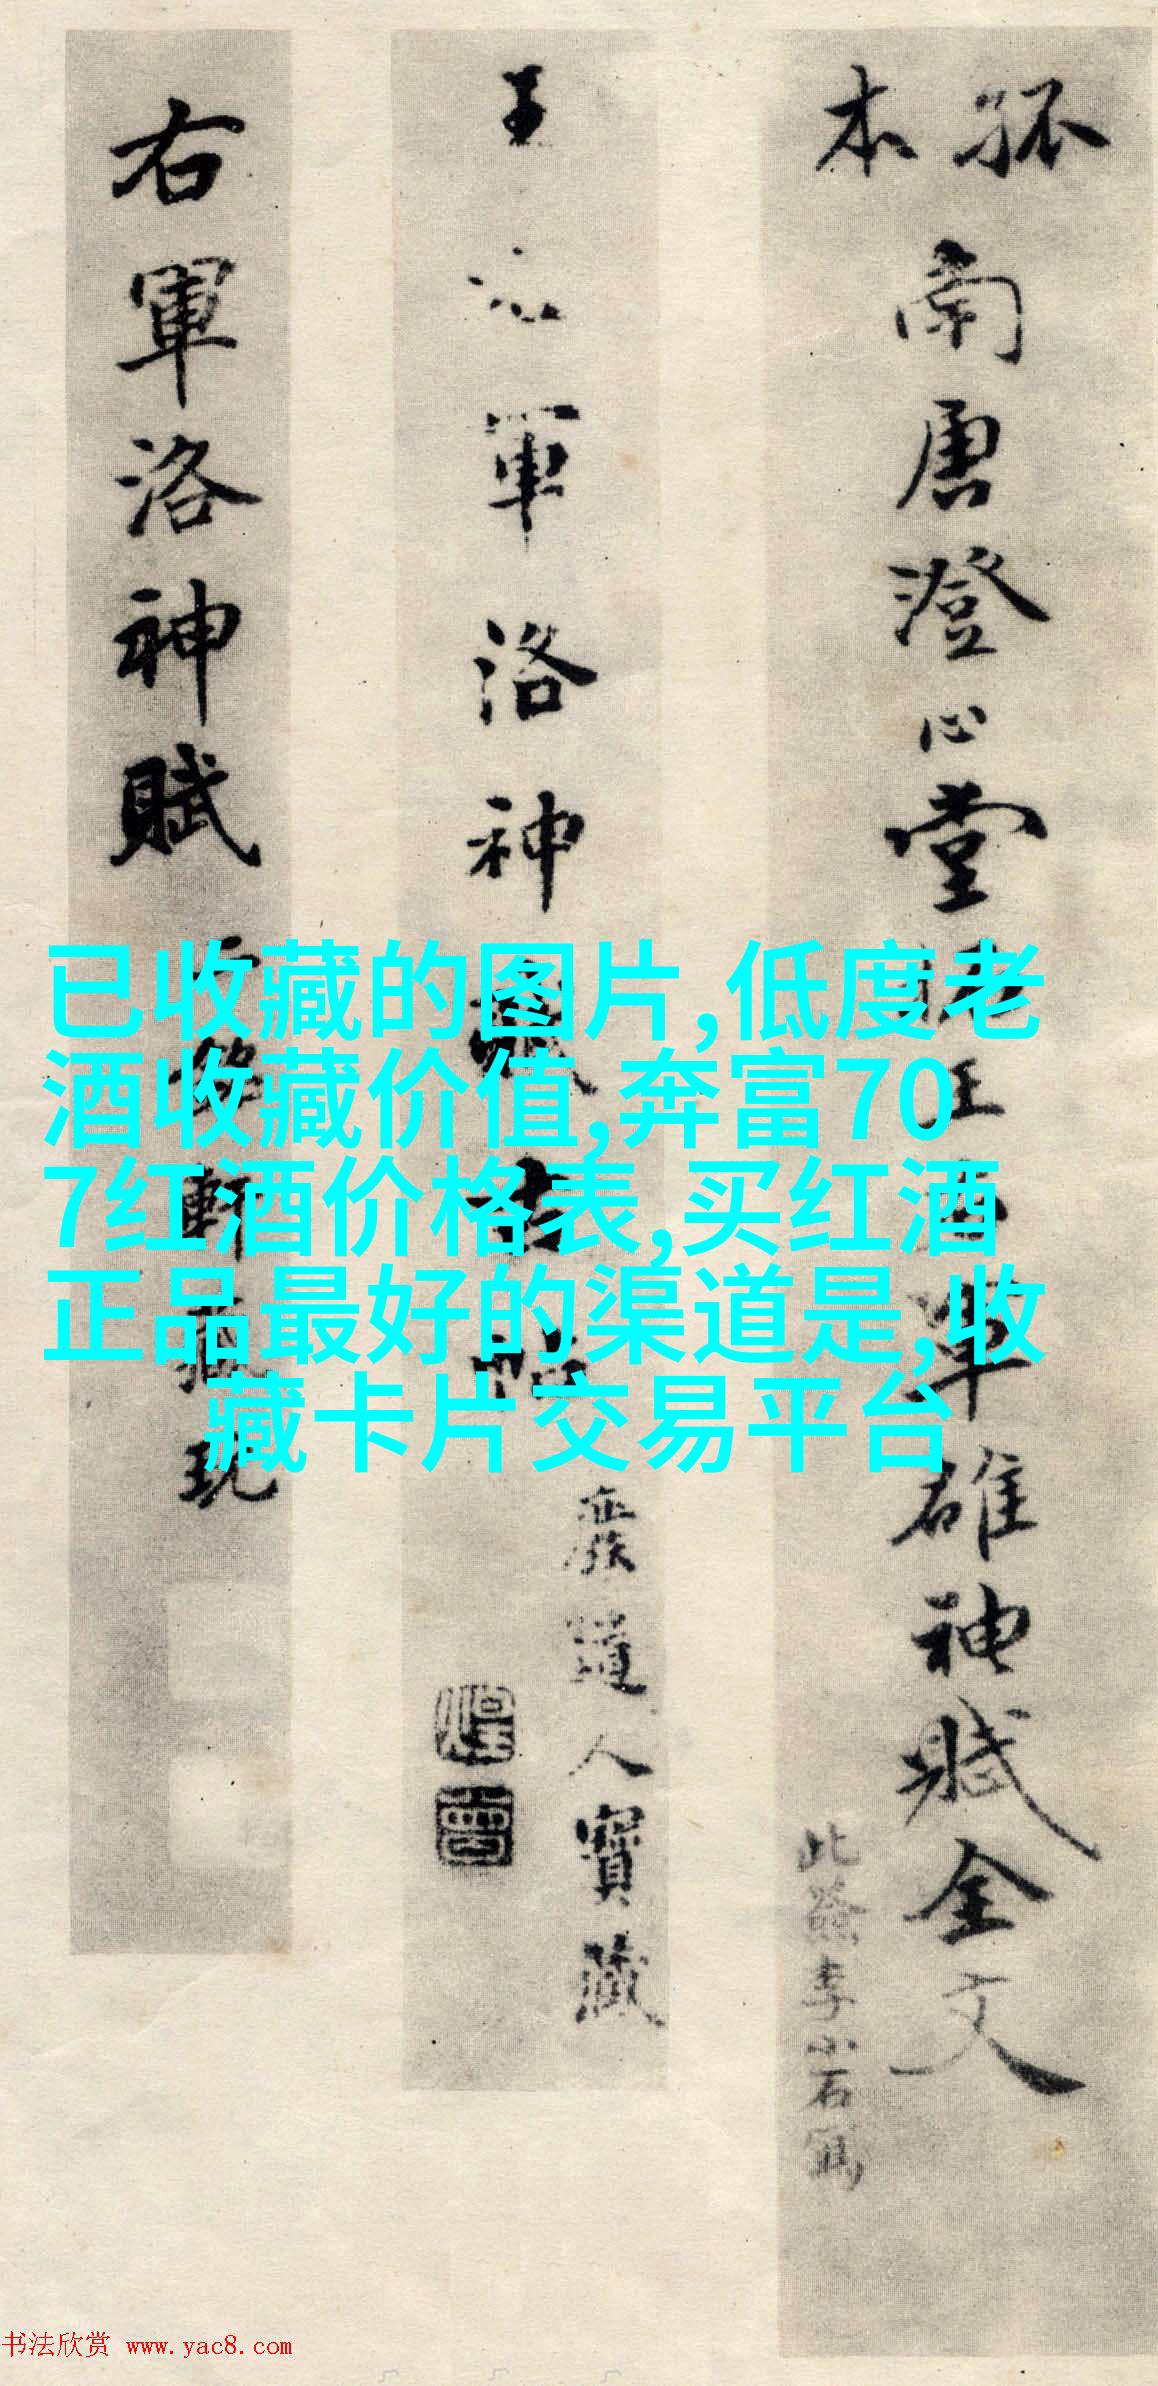 孤本
南唐澄心堂
王右軍碓神賦全文
此籤李小石寫
王右軍洛神賦古帖
廢道人寶藏
右軍洛神賦
軒藏玩
已收藏的图片,低度老
酒收藏价值,奔富70
7红酒价格表,买红酒
正品最好的渠道是,收
藏卡片交易平台
书法欣赏 www.yac8.com